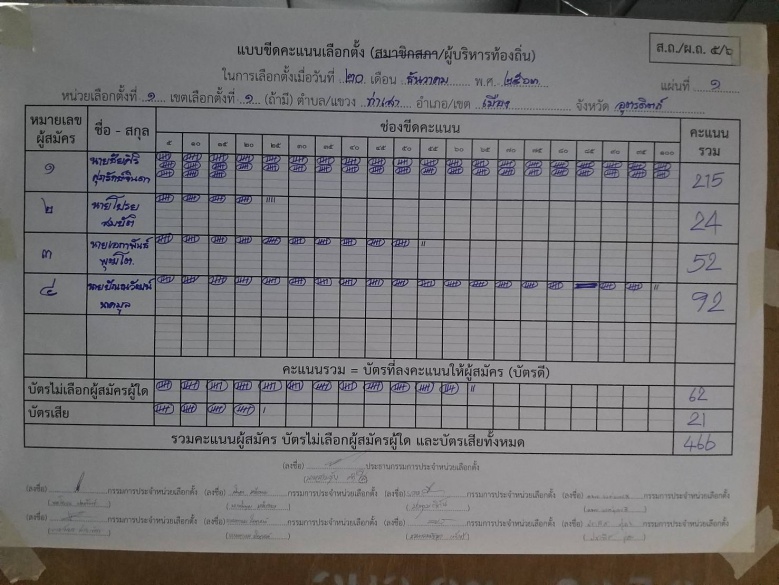 ส.ถ./ผ.ถ. ๕/๖
แบบขีดคะแนนเลือกตั้ง (สมาชิกสภา/ผู้บริหารท้องถิ่น)
ในการเลือกตั้งเมื่อวันที่ ๒๐ เดือน ธันวาคม พ.ศ. ๒๕๖๓ แผ่นที่ ๑
หน่วยเลือกตั้งที่ ๑ เขตเลือกตั้งที่ ๑ (ถ้ามี) ตำบล/แขวง ท่าเสา อำเภอ/เขต เมือง จังหวัด อุตรดิตถ์
หมายเลขผู้สมัคร ชื่อ - สกุล ช่องขีดคะแนน คะแนนรวม
๕ ๑๐ ๑๕ ๒๐ ๒๕ ๓๐ ๓๕ ๔๐ ๔๕ ๕๐ ๕๕ ๖๐ ๖๕ ๗๐ ๗๕ ๘๐ ๘๕ ๙๐ ๙๕ ๑๐๐
๑ นายชัยศิริ ศุภรักษ์จินดา 215
๒ นายโปรย สมบัติ 24
๓ นายเอกาพันธ์ 52
๔ 92
คะแนนรวม = บัตรที่ลงคะแนนให้ผู้สมัคร (บัตรดี)
บัตรไม่เลือกผู้สมัครผู้ใด 62
บัตรเสีย 21
รวมคะแนนผู้สมัคร บัตรไม่เลือกผู้สมัครผู้ใด และบัตรเสียทั้งหมด 466
(ลงชื่อ) ประธานกรรมการประจำหน่วยเลือกตั้ง
(ลงชื่อ) กรรมการประจำหน่วยเลือกตั้ง (ลงชื่อ) กรรมการประจำหน่วยเลือกตั้ง (ลงชื่อ) กรรมการประจำหน่วยเลือกตั้ง (ลงชื่อ) กรรมการประจำหน่วยเลือกตั้ง
(ลงชื่อ) กรรมการประจำหน่วยเลือกตั้ง (ลงชื่อ) กรรมการประจำหน่วยเลือกตั้ง (ลงชื่อ) กรรมการประจำหน่วยเลือกตั้ง (ลงชื่อ) กรรมการประจำหน่วยเลือกตั้ง